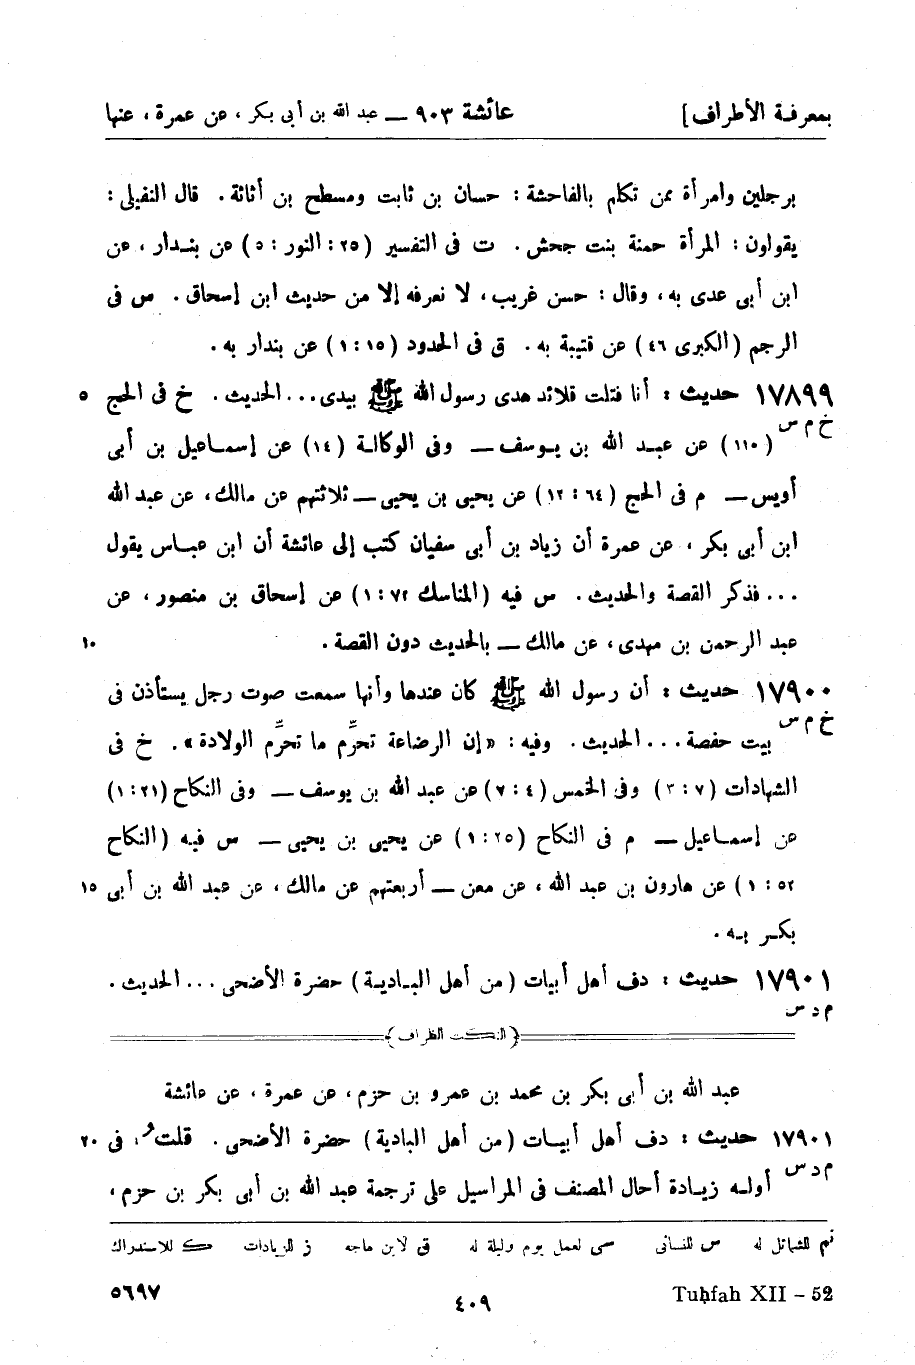 بمعرفة الأطراف] عائشة ٩٠٣ — عبد الله بن أبى بكر ، عن عمرة ، عنها
برجلين وامرأة ممن تكلم بالفاحشة : حسان بن ثابت ومسطح بن أثاثة . قال النفيلى :
يقولون : المرأة حمنة بنت جحش . ت فى التفسير (٢٥ : النور : ٥) عن بندار ، عن
ابن أبى عدى به ، وقال : حسن غريب ، لا نعرفه إلا من حديث ابن إسحاق . س فى
الرجم (الكبرى ٤٦) عن قتيبة به . ق فى الحدود (١٥ : ١) عن بندار به .
١٧٨٩٩ حديث : أنا فتلت قلائد هدى رسول الله ﷺ بيدى... الحديث . خ فى الحج ٥
خ م س (١١٠) عن عبد الله بن يوسف — وفى الوكالة (١٤) عن إسماعيل بن أبى
أويس — م فى الحج (٦٤ : ١٢) عن يحيى بن يحيى — ثلاثتهم عن مالك ، عن عبد الله
ابن أبى بكر ، عن عمرة أن زياد بن أبى سفيان كتب إلى عائشة أن ابن عباس يقول
... فذكر القصة والحديث . س فيه (المناسك ٧٢ : ١) عن إسحاق بن منصور ، عن
عبد الرحمن بن مهدى ، عن مالك — بالحديث دون القصة . ١٠
١٧٩٠٠ حديث : أن رسول الله ﷺ كان عندها وأنها سمعت صوت رجل يستأذن فى
خ م س بيت حفصة ... الحديث . وفيه : «إن الرضاعة تحرِّم ما تحرِّم الولادة» . خ فى
الشهادات (٧ : ٣) وفى الخمس (٤ : ٧) عن عبد الله بن يوسف — وفى النكاح (٢١ : ١)
عن إسماعيل — م فى النكاح (٢٥ : ١) عن يحيى بن يحيى — س فيه (النكاح
٥٢ : ١) عن هارون بن عبد الله ، عن معن — أربعتهم عن مالك ، عن عبد الله بن أبى ١٥
بكر به .
١٧٩٠١ حديث : دف أهل أبيات (من أهل البادية) حضرة الأضحى ... الحديث .
م د س
(النكت الظراف)
عبد الله بن أبى بكر بن محمد بن عمرو بن حزم ، عن عمرة ، عن عائشة
١٧٩٠١ حديث : دف أهل أبيات (من أهل البادية) حضرة الأضحى . قلت : فى ٢٠
م د س أوله زيادة أحال المصنف فى المراسيل على ترجمة عبد الله بن أبى بكر بن حزم ،
تم للشمائل له س للنسائى سى لعمل يوم وليلة له ق لابن ماجه ز للزيادات ك للاستدراك
Tuḥfah XII - 52 ٤٠٩ ٥٦٩٧